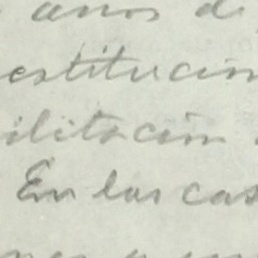 anos de
estitucion
ilitacion
En las cas